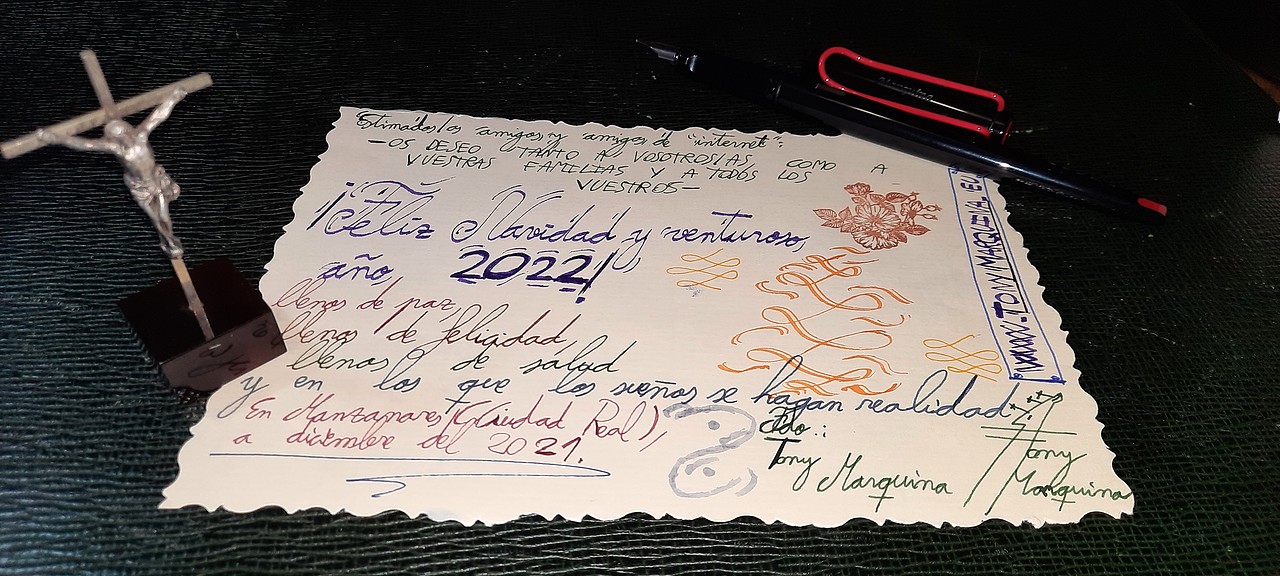 Estimados/as amigos, y amigos de "internet":
—OS DESEO TANTO A VOSOTROS/AS, COMO A
VUESTRAS FAMILIAS Y A TODOS LOS
VUESTROS—
¡Feliz Navidad y venturoso,
año, 2022!
llenos de paz,
llenos de felicidad,
llenos de salud
y en los que los sueños se hagan realidad
En Manzanares (Ciudad Real),
a diciembre del 2021.
Fdo.:
Tony Marquina
Tony
Marquina
www.TONYMARQUINA.EU